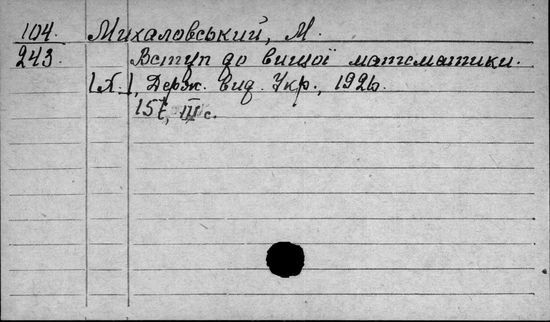 104. Михаловський, М.
243. Вступ до вищої математики.
[Х.], Держ. вид. Укр., 1926.
III с.